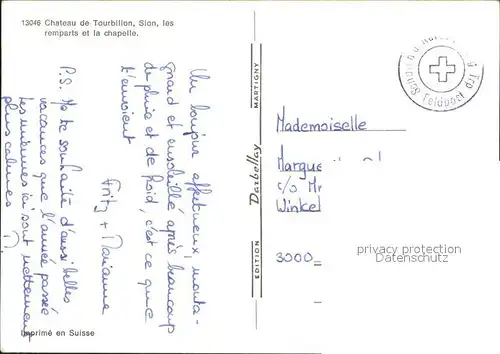 13046 Chateau de Tourbillon, Sion, les
remparts et la chapelle.
Un bonjour affectueux, monta-
gnard et ensoleillé après beaucoup
de pluie et de froid, c'est ce que
t'envoient
Fritz + Marianne
P.S. Je te souhaite d'aussi belles
vacances que l'année passée
Les miennes ici sont nettement
plus calmes
Imprimé en Suisse
EDITION Darbellay MARTIGNY
Feldpost
Mademoiselle
Margue
c/o Mr
Winkel
3000
privacy protection
Datenschutz